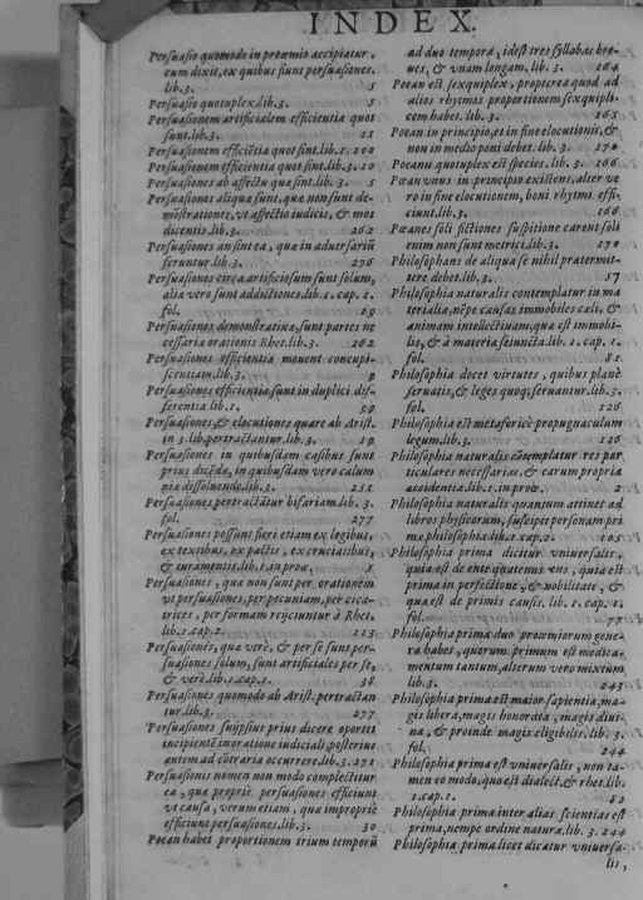 INDEX.
Persuasio quomodo in proœmio accipiatur,
cum dixit, ex quibus fiunt persuasiones.
lib.3. 5
Persuasio quotuplex.lib.3. 5
Persuasionem artificialem efficientia quot
sunt.lib.3. 11
Persuasionem efficiẽtia quot sint.lib.1. 200
Persuasionem efficientia quot sint.lib.3. 10
Persuasiones ab affectu quæ sint.lib. 3. 5
Persuasiones aliquæ sunt, quæ non sunt de-
mõstrationes, vt affectio iudicis, & mos
dicentis.lib.3. 262
Persuasiones an sint ea, quæ in aduersariũ
feruntur.lib.3. 276
Persuasiones circa artificiosum sunt solum,
alia vero sunt addictiones.lib.1. cap. 1.
fol. 29
Persuasiones demonstratiua, sunt partes ne
cessaria orationis Rhet.lib.3. 262
Persuasiones efficientia mouent concupi-
scentiam.lib.3. 9
Persuasiones efficientia sunt in duplici dif-
ferentia.lib.1. 59
Persuasiones, & elocutiones quare ab Arist.
in 3. lib. pertractantur.lib.3. 19
Persuasiones in quibusdam casibus sunt
prius dicẽda, in quibusdam vero calum
nia dissoluenda.lib.3. 251
Persuasiones pertractãtur bifariam.lib. 3.
fol. 277
Persuasiones possunt fieri etiam ex legibus,
ex testibus, ex pactis, ex cruciatibus,
& iuramentis.lib.1.in proæ.
Persuasiones, quæ non sunt per orationem
vt persuasiones, per pecuniam, per cica-
trices, per formam reijciuntur à Rhet.
lib.1.cap.2. 113
Persuasionis, quæ verè, & per se sunt per-
suasiones solum, sunt artificiales per se,
& verè.lib.1.cap.1. 38
Persuasiones quomodo ab Arist. pertractan
tur.lib.3. 277
Persuasiones suijpsius prius dicere oportet
incipientẽ in oratione iudiciali, posterius
autem ad cõtraria occurrere.lib.3. 271
Persuasionis nomen non modo complectitur
ea, quæ proprie persuasiones efficiunt
vt causa, verum etiam, quæ impropriè
efficiunt persuasiones.lib.3. 30
Pœan habet proportionem trium temporũ
ad duo tempora, idest tres syllabas bre-
ues, & vnam longam. lib. 3. 164
Pœan est sexquiplex, propterea quod ad
alios rhytmos proportionem sexquipli-
cem habet. lib. 3. 165
Pœan in principio, et in fine elocutionis, &
non in medio poni debet. lib. 3. 170
Pœanu quotuplex est species. lib. 3. 166
Pœan vnus in principio existens, alter ve
ro in fine elocutionem, boni rhytmi effi-
ciunt.lib.3. 166
Pœanes soli fictiones suspitione carent soli
enim non sunt metrici.lib.3. 170
Philosophans de aliqua re nihil prætermit-
tere debet.lib.3. 57
Philosophia naturalis contemplatur in ma
terialia, nẽpe causas immobiles cæli, &
animam intellectiuam, quæ est immobi-
lis, & à materia seiuncta.lib. 1. cap. 1.
fol. 81
Philosophia docet virtutes, quibus planè
seruatis, & leges quoq; seruantur.lib.3.
fol. 126
Philosophia est metaforicè propugnaculum
legum.lib.3. 126
Philosophia naturalis cõtemplatur res par
ticulares necessarias, & earum propria
accidentia.lib.1.in proæ. 2
Philosophia naturalis quantum attinet ad
libros physicorum, suscipit personam pri
mæ philosophiæ.lib.1.cap.2. 105
Philosophia prima dicitur vniuersalis,
quia est de ente quatenus ens, quia est
prima in perfectione, & nobilitate, &
quæ est de primis causis. lib. 1. cap. 1.
fol. 77
Philosophia prima duo proœmiorum gene-
ra habes, quorum primum est medica-
mentum tantum, alterum vero mixtum
lib.3. 243
Philosophia prima est maior sapientia, ma-
gis libera, magis honorata, magis diui-
na, & proinde magis eligibilis. lib. 3.
fol. 244
Philosophia prima est vniuersalis, non ta-
men eo modo, quo est dialect. & rhet.lib.
1.cap.1. 82
Philosophia prima inter alias scientias est
prima, nempe ordine naturæ.lib. 3. 244
Philosophia prima licet dicatur vniuersa-
lis,